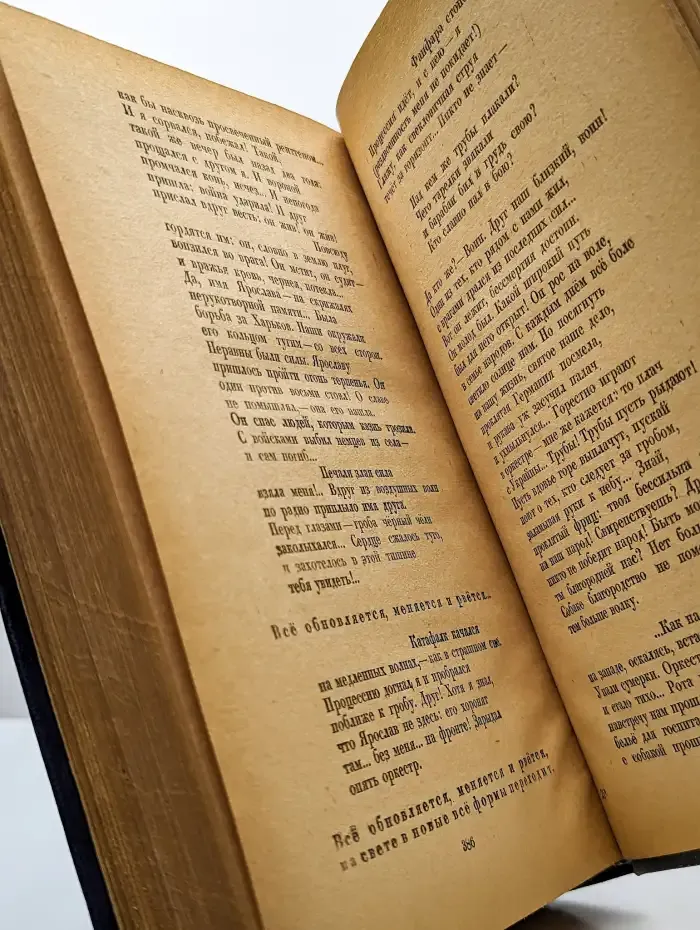 как бы насквозь просвеченный рентгеном...
И я сорвался, побежал! Такой,
такой же вечер был назад два года:
прощался с другом я. И вороной
промчался конь, исчез... И непогода
пришла: война ударила! И друг
прислал вдруг весть: он жив! он жив!
Повсюду
гордятся им: он, словно в землю плуг,
вонзился во врага! Он мстит, он судит—
и вражья кровь, чернея, потекла...
Да, имя Ярослава—на скрижалях
нерукотворной памяти... Была
борьба за Харьков. Наши окружали
его кольцом тугим—со всех сторон.
Неравны были силы. Ярославу
пришлось пройти огонь терпенья. Он
один против восьми стоял! О славе
не помышлял,—она его нашла.
Он спас людей, которым казнь грозила.
С войсками выбил немцев из села—
и сам погиб...
Печали злая сила
взяла меня!.. Вдруг из воздушных волн
по радио приплыло имя друга.
Перед глазами—гроба чёрный чёлн
заколыхался... Сердце сжалось туго,
и захотелось в этой тишине
тебя увидеть!..
Всё обновляется, меняется и рвётся..
Катафалк качался
на медленных волнах,—как в страшном сне.
Процессию догнал я и пробрался
поближе к гробу. Друг! Хотя я знал,
что Ярослав не здесь: его хоронят
там... без меня... на фронте! Зарыдал
опять оркестр.
Всё обновляется, меняется и рвётся,
на свете в новые всё формы переходит.
386
Фанфара стон
Процессия идёт, и с нею—я
(раздвоенность меня не покидает!)
Гляжу, так свекловичная струя
течёт за горизонт... Никто не знает—
Над кем же трубы плакали?
Чего тарелки звякали
и барабан бил в грудь свою?
Кто славно пал в бою?
Да кто же?—Воин. Друг наш близкий, воин!
Один из тех, кто рядом с нами жил,
с врагами дрался из последних сил...
Вот он лежит, бессмертия достоин.
Он молод был. Какой широкий путь
был для него открыт! Он рос на воле,
в семье народов. С каждым днём всё боле
светило солнце нам. Но посягнуть
на нашу жизнь, святое наше дело,
проклятая Германия посмела,
и ружья уж засучил палач,
и ухмыльнулся... Горестно играют
в оркестре—мне же кажется: то плач
с Украины... Трубы! Трубы пусть рыдают!
Пусть вдовье горе выплачут, пускай
поют о тех, кто следует за гробом,
заламывая руки к небу... Знай,
проклятый фриц: твоя бессильна
на наш народ! Свирепствуешь?
никто не победит народ! Быть
ты благородней нас? Нет
Собаке благородство не
тем больше волку.
...Как на
на западе, оскалясь,
Упали сумерки.
и стало тихо... Рота
навстречу нам
бельё для
с собакой